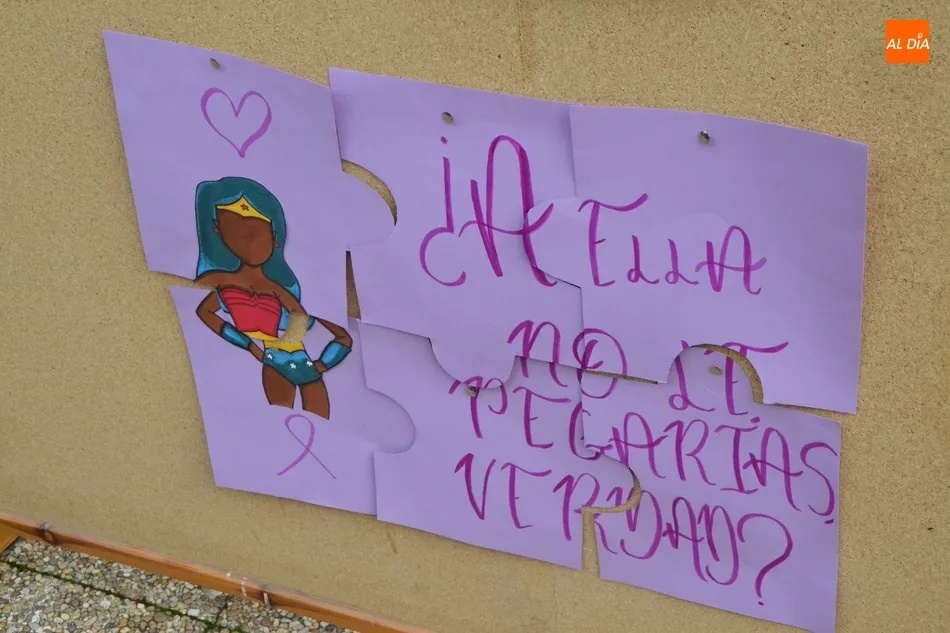 AL DÍA
¿A ELLA
NO LE
PEGARÍAS,
VERDAD?